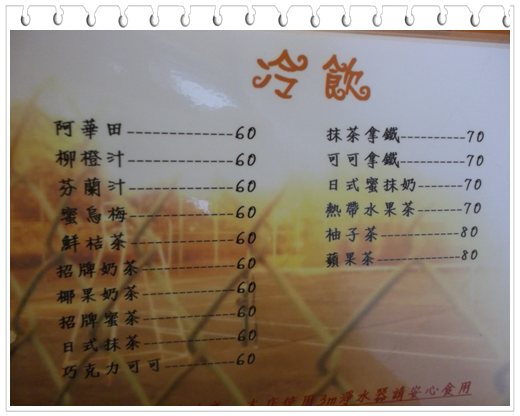 冷飲
阿華田--------------60
柳橙汁--------------60
芬蘭汁--------------60
蜜烏梅--------------60
鮮桔茶--------------60
招牌奶茶------------60
椰果奶茶------------60
招牌蜜茶------------60
日式抹茶------------60
巧克力可可----------60
抹茶拿鐵----------70
可可拿鐵----------70
日式蜜抹奶-------70
熱帶水果茶-------70
柚子茶------------80
蘋果茶------------80
本店使用3m淨水器請安心食用